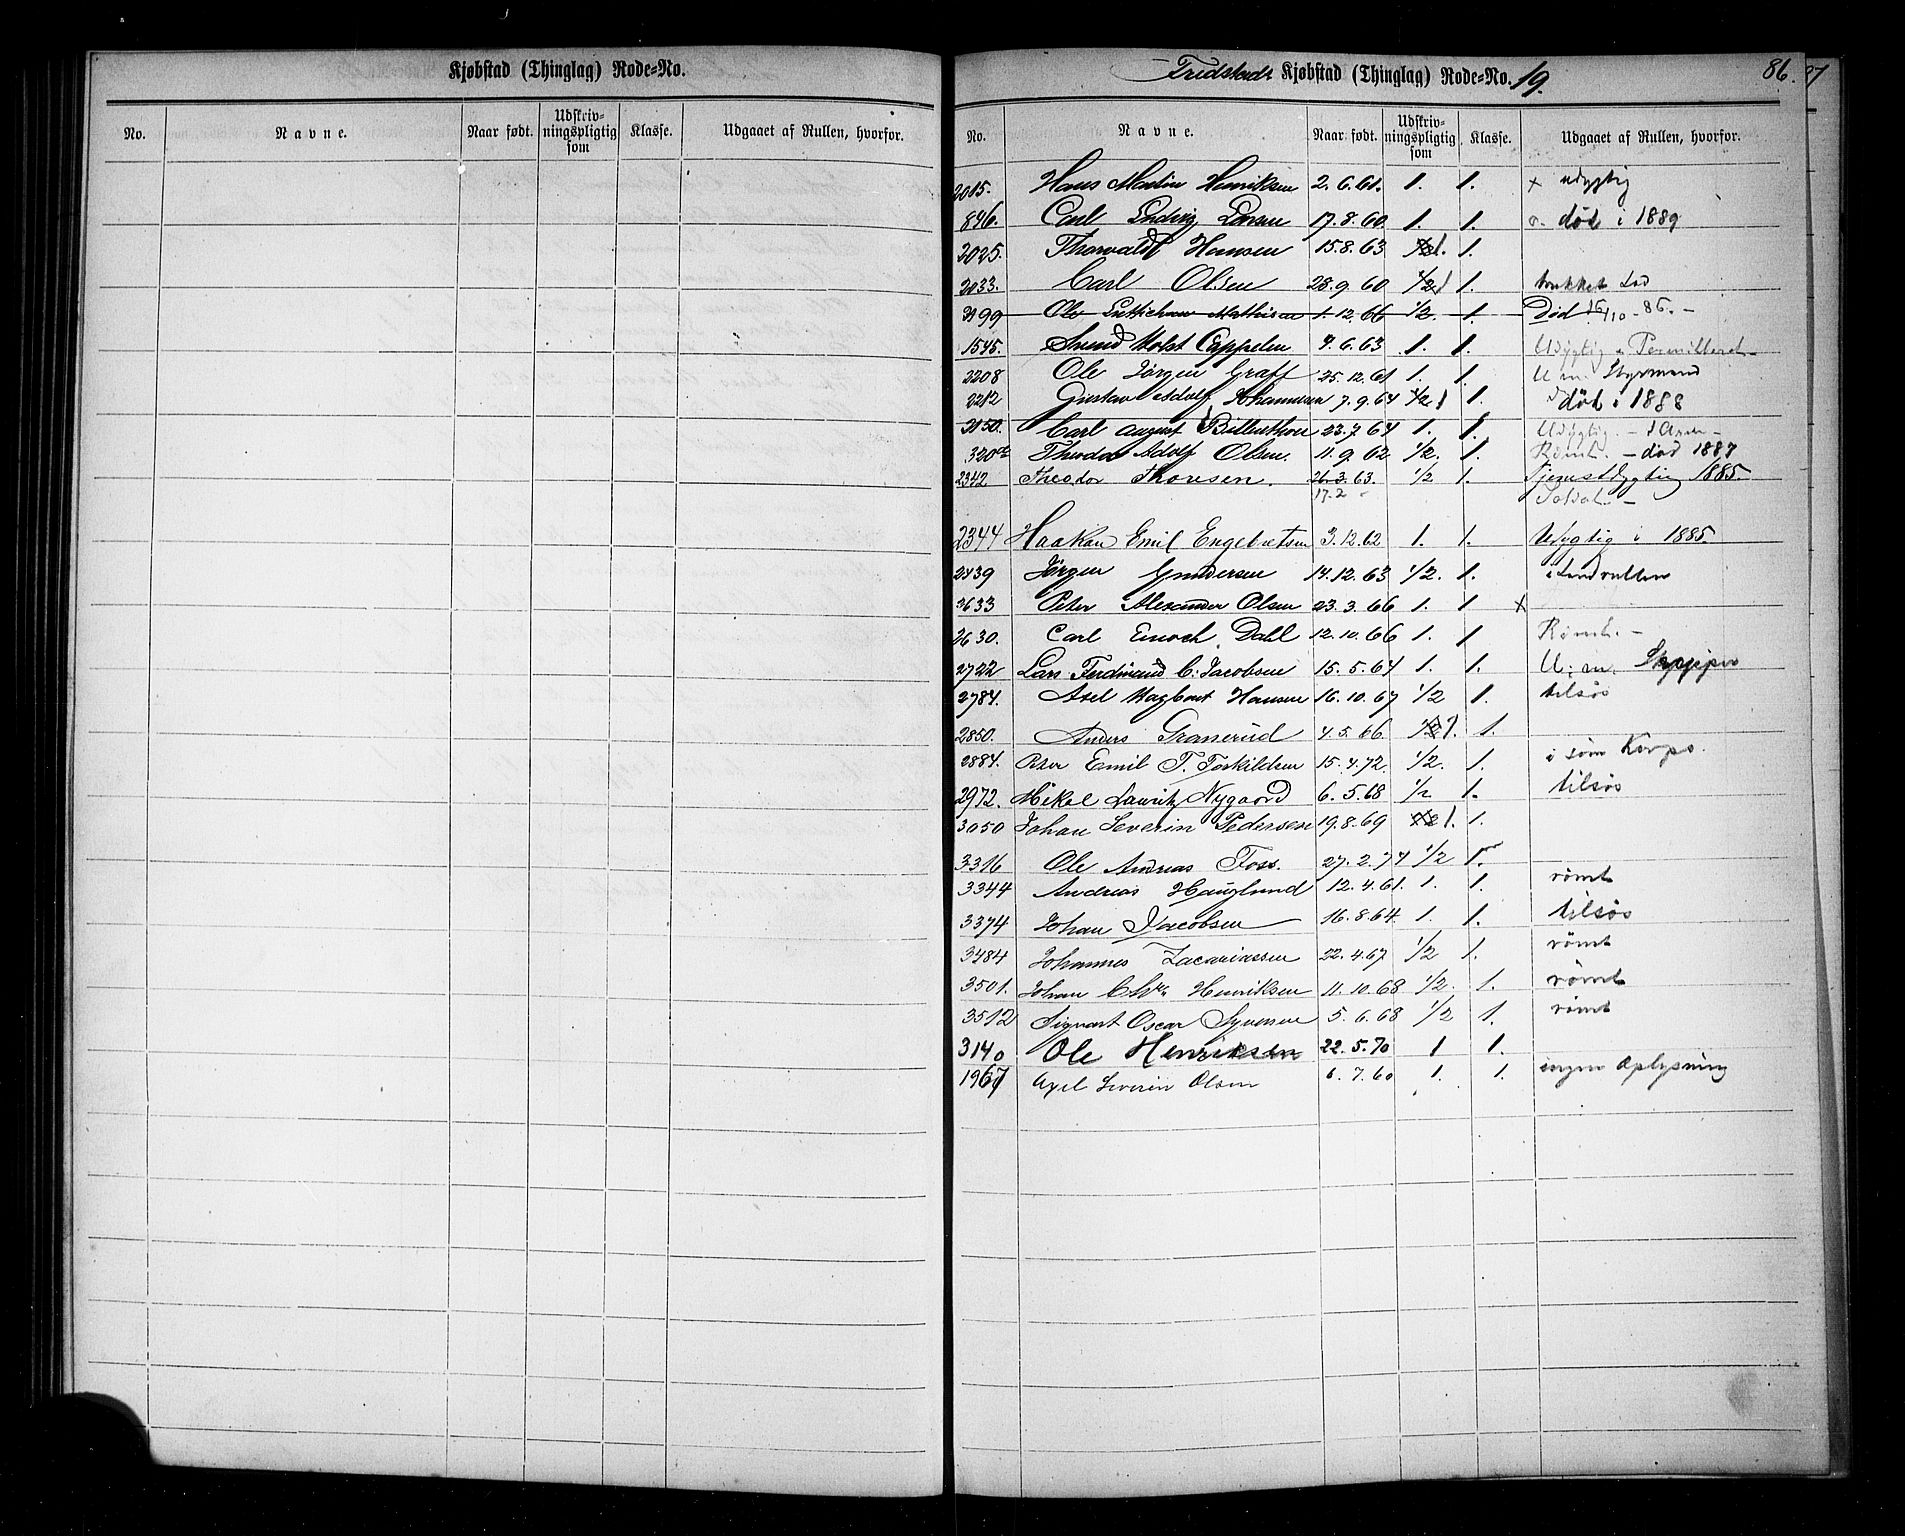 Kjøbstad (Thinglag) Rode=No.
No. Navne. Naar født. Udskriv-ningspligtig som Klasse. Udgaaet af Rullen, hvorfor.
Fredstads Kjøbstad (Thinglag) Rode=No. 19. 86. 87
No. Navne. Naar født. Udskriv-ningspligtig som Klasse. Udgaaet af Rullen, hvorfor.
2015. Hans Martin Henriksen 2. 6. 61. 1. 1. x udygtig
846. Carl Ludvig Larsen 17. 8. 60 1. 1. død i 1889
2025. Thorvald Hansen 15. 8. 63 1. 1.
2033. Carl Olsen 28. 9. 60 1/2 1. trukket Lod
Ole Mathisen 1. 12. 66 1/2. 1. Død 16/10 - 86. -
1545. Svend Holst Cappelen 4. 6. 63 1. 1. Udygtig
2208 Ole Jørgen Graff 25. 12. 61 1. 1. U. m. Styrmand
2212 Gustav Adolf Johannesen 7. 9. 64 1/2 1. død i 1888
Carl August 23. 7. 64 1. 1. Udygtig. -
Theodor Adolf Olsen. 11. 9. 62 1/2. 1. Rømt. - død 1887
2342 Theodor Thoresen. 26. 3. 63. 1/2 1. Tjenstdygtig 1885.
17. 2 Soldat. -
2344 Haakon Emil Engebretsen 3. 12. 62 1. 1. Udygtig i 1885.
2439 Jørgen Gundersen 14. 12. 63 1/2. 1. i Landrullen
2633 Peter Alexander Olsen 23. 3. 66 1. 1 x
2630. Carl Enoch Dahl 12. 10. 66 1. 1 Rømt. -
2722 Lars Ferdinand C. Jacobsen 15. 5. 64 1. 1. U. m. Skipper
2784. Axel Hagbart Hansen 16. 10. 67 1/2 1. tilsøs
2850. Anders Granerud 4. 5. 66 1. 1.
2884. Peter Emil T. Torkildsen 15. 4. 72. 1/2. 1. i søm Korps.
2972. Mikal Lauritz Nygaard 6. 5. 68 1/2 1. tilsøs
3050 Johan Severin Pedersen 19. 8. 69 1. 1.
3316 Ole Andreas Foss. 27. 2. 74 1/2 1.
3344 Andreas Hauglund 12. 4. 61. 1. 1. rømt
3374 Johan Jacobsen 16. 8. 64 1. 1. tilsøs
3484 Johannes Zacariassen 22. 4. 67 1/2 1. rømt
3501. Johan Chr. Henriksen 11. 10. 68 1/2. 1. rømt
3512 Sigvart Oscar Syversen 5. 6. 68 1/2 1. rømt
3140 Ole Henriksen 22. 5. 70 1 1.
1967 Axel Severin Olsen 6. 7. 60 1. 1. ingen Oplysning